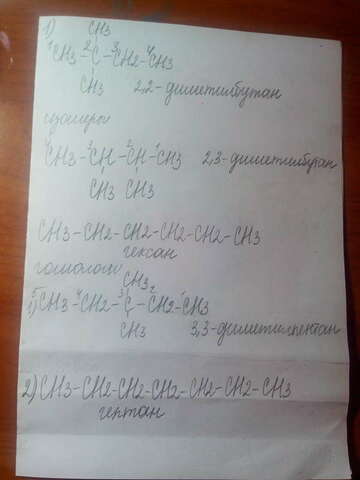 1) CH3
1CH3 - 2C - 3CH2 - 4CH3
CH3 2,2-диметилбутан
изомеры
4CH3 - 3CH - 2CH - 1CH3 2,3-диметилбутан
CH3 CH3
CH3 - CH2 - CH2 - CH2 - CH2 - CH3
гексан
гомологи
CH3
1) 5CH3 - 4CH2 - 3C - 2CH2 - 1CH3
CH3 3,3-диметилпентан
2) CH3 - CH2 - CH2 - CH2 - CH2 - CH2 - CH3
гептан